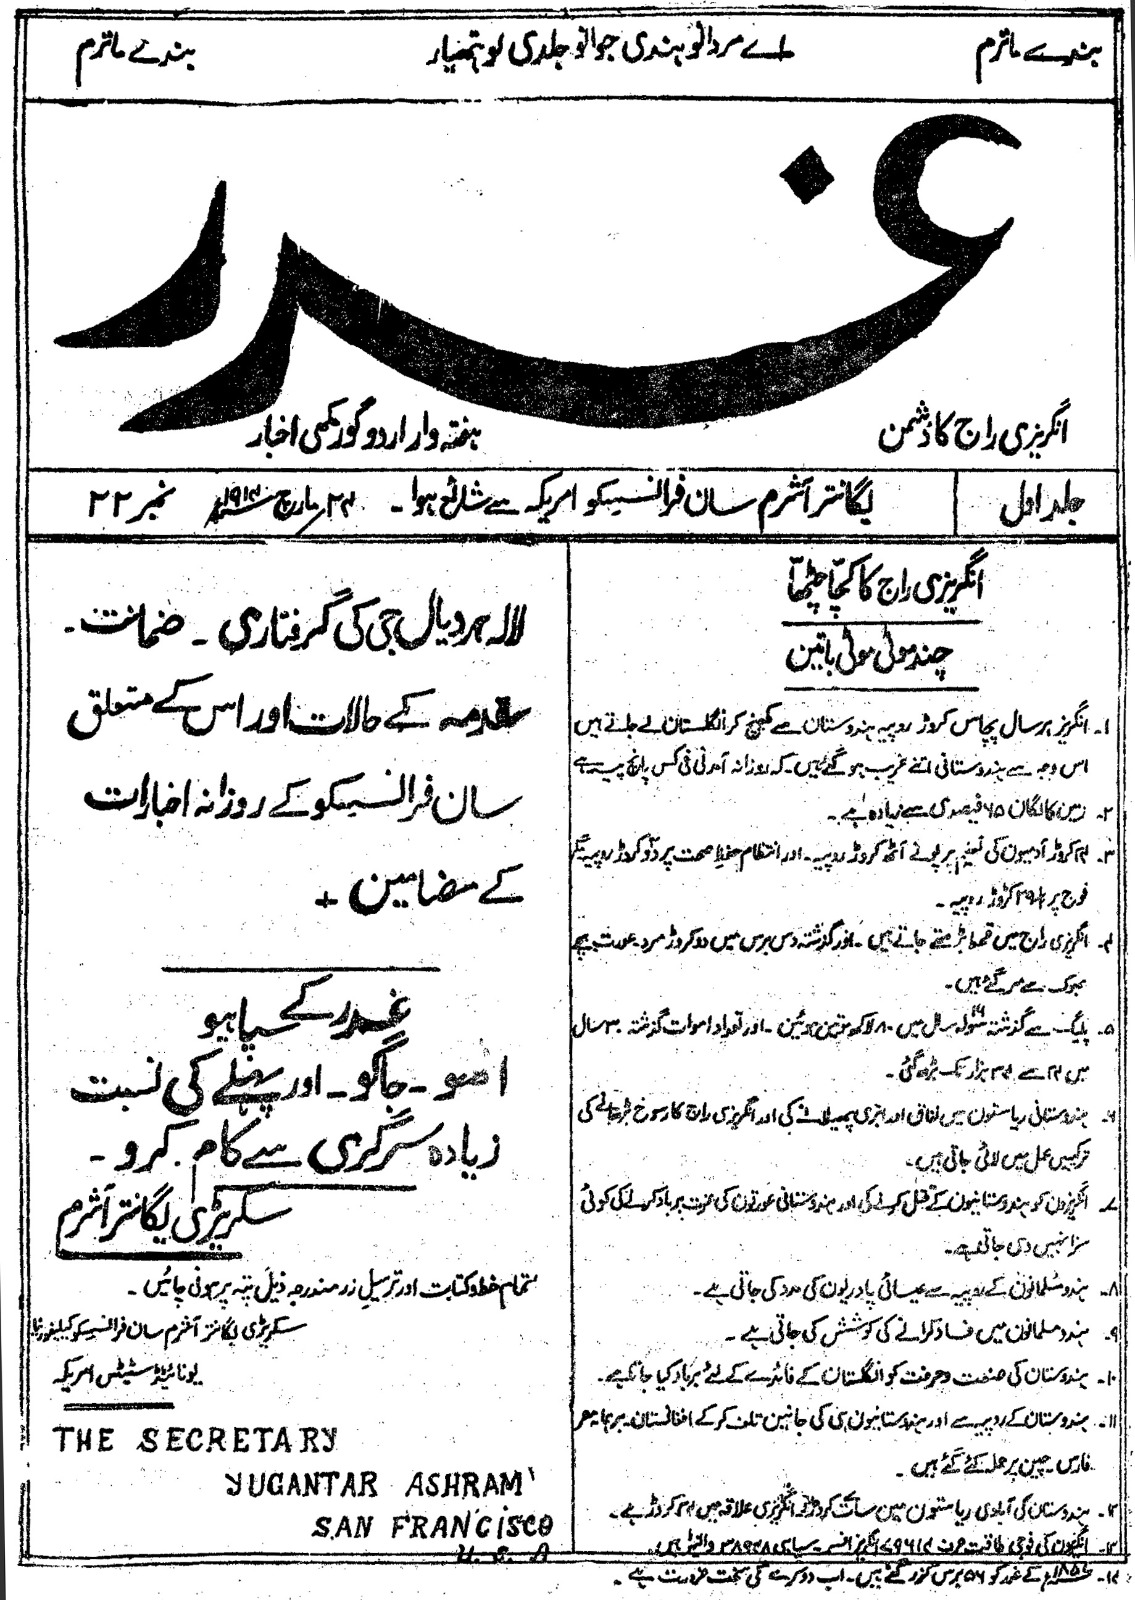 بندے ماترم
اے مردانو ہندی جوانو جلدی لو ہتھیار
بندے ماترم
غدر
انگریزی راج کا دشمن
ہفتہ وار اردو گورمکھی اخبار
جلد اول
یگانتر آشرم سان فرانسیسکو امریکہ سے شائع ہوا۔
۲۴ مارچ سنہ ۱۹۱۴ء
نمبر ۲۲
انگریزی راج کا کچّا چٹھّا
چند موٹی موٹی باتین
۱۔ انگریز ہر سال پچاس کروڑ روپیہ ہندوستان سے کھینچ کر انگلستان لے جاتے ہیں
اس وجہ سے ہندوستانی اتنے غریب ہو گئے ہیں۔ کہ روزانہ آمدنی فی کس پانچ پیسہ ہے
۲۔ زمین کا لگان ۶۵ فیصدی سے زیادہ ہے۔
۳۔ ۲۴ کروڑ آدمیون کی تعلیم پر پونے آٹھ کروڑ روپیہ۔ اور انتظام حفظِ صحت پر دو کروڑ روپیہ مگر
فوج پر ۲۹½ کروڑ روپیہ۔
۴۔ انگریزی راج میں قحط بڑھتے جاتے ہیں۔ اور گذشتہ دس برس میں دو کروڑ مرد۔ عورت۔ بچے
بھوک سے مر گئے ہیں۔
۵۔ پلیگ سے گذشتہ سولہ سال میں ۸۰ لاکھ موتین ہوئین۔ اور تعداد اموات گذشتہ ۳۰ سال
میں ۲۴ سے ۳۴ ہزار تک بڑھ گئی۔
۶۔ ہندوستانی ریاستون میں نفاق اور ابتری پھیلانے کی اور انگریزی راج کا رسوخ بڑھانے کی
ترکیبیں عمل میں لائی جاتی ہیں۔
۷۔ انگریزون کو ہندوستانیون کے قتل کرنے کی اور ہندوستانی عورتون کی عزت برباد کرنے کی کوئی
سزا نہیں دی جاتی ہے۔
۸۔ ہندو مسلمانون کے روپیہ سے عیسائی پادریون کی مدد کی جاتی ہے۔
۹۔ ہندو مسلمانون میں فساد کرانے کی کوشش کی جاتی ہے۔
۱۰۔ ہندوستان کی صنعت و حرفت کو انگلستان کے فائدے کے لئے برباد کیا جاتا ہے۔
۱۱۔ ہندوستان کے روپیہ سے اور ہندوستانیون ہی کی جانین تلف کر کے افغانستان۔ برہما۔ مصر
فارس۔ چین پر حملے کئے گئے ہیں۔
۱۲۔ ہندوستان کی آبادی ریاستون میں سات کروڑ اور انگریزی علاقہ میں ۲۴ کروڑ ہے۔
۱۳۔ انگریزون کی فوجی طاقت صرف ۷۹۶۱۴ انگریز افسر و سپاہی ۳۸۹۴۸ والنٹیر ہیں۔
۱۴۔ سنہ ۱۸۵۷ء کے غدر کو ۵۶ برس گزر گئے ہیں۔ اب دوسرے کی سخت ضرورت ہے۔
لالہ ہردیال جی کی گرفتاری۔ ضمانت۔
مقدمہ کے حالات اور اس کے متعلق
سان فرانسیسکو کے روزانہ اخبارات
کے مضامین +
غدر کے سپاہیو
اٹھو۔ جاگو۔ اور پہلے کی نسبت
زیادہ سرگرمی سے کام کرو۔
سکریٹری یگانتر آشرم
تمام خط و کتابت اور ترسیل زر مندرجہ ذیل پتہ پر ہونی چائیں۔
سکریٹری یگانتر آشرم سان فرانسیسکو کیلیفورنیا
یونائیٹڈ سٹیٹس امریکہ
THE SECRETARY
YUGANTAR ASHRAM
SAN FRANCISCO
U. S. A